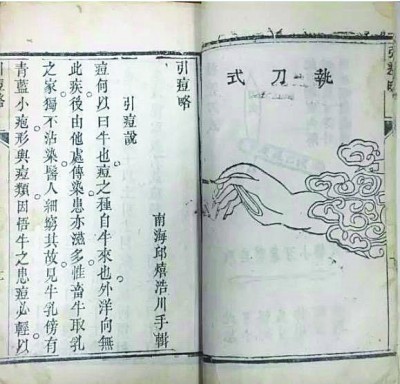 引痘略
執刀式
引痘略
南海邱熺浩川手輯
引痘說
痘何以曰牛也痘之種自牛來也外洋向無
此疾後由他處傳染患亦滋多惟畜牛取乳
之家獨不沾染醫人細窮其故見牛乳傍有
青藍小疱形與痘類因悟牛之患痘必輕以
引痘略